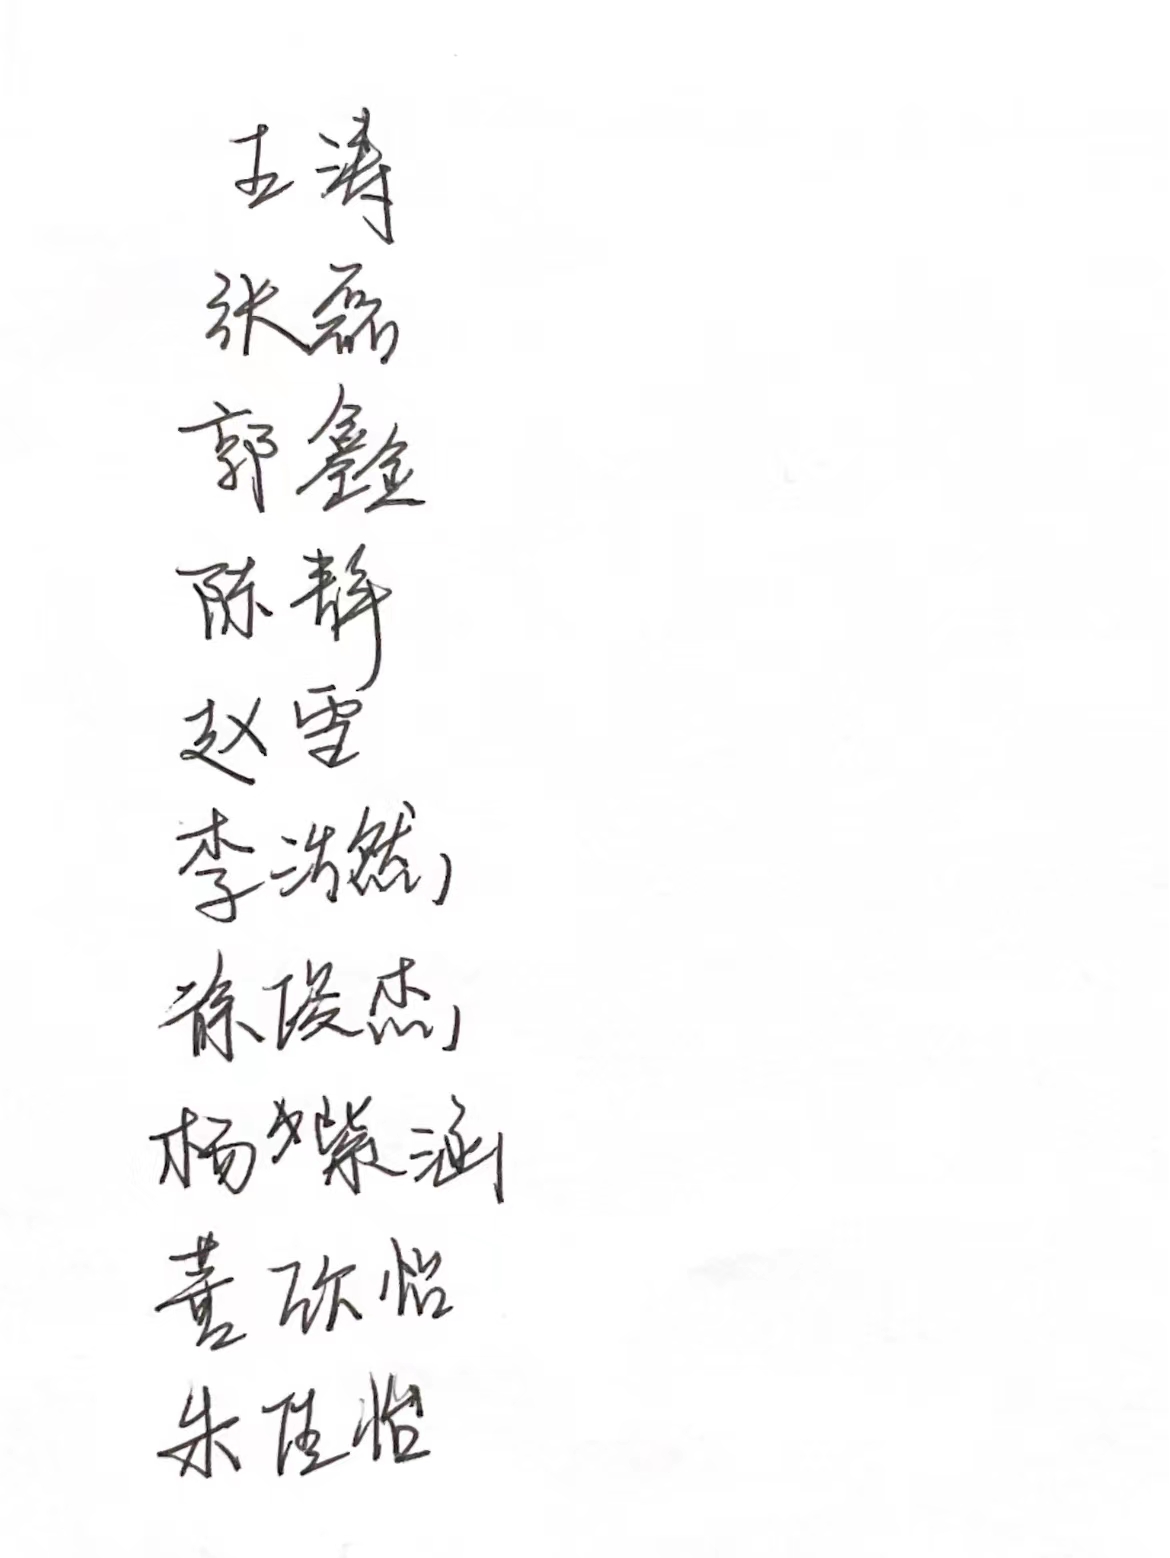 王涛
张磊
郭鑫
陈静
赵雪
李浩然
徐俊杰
杨紫涵
黄欣怡
朱佳怡